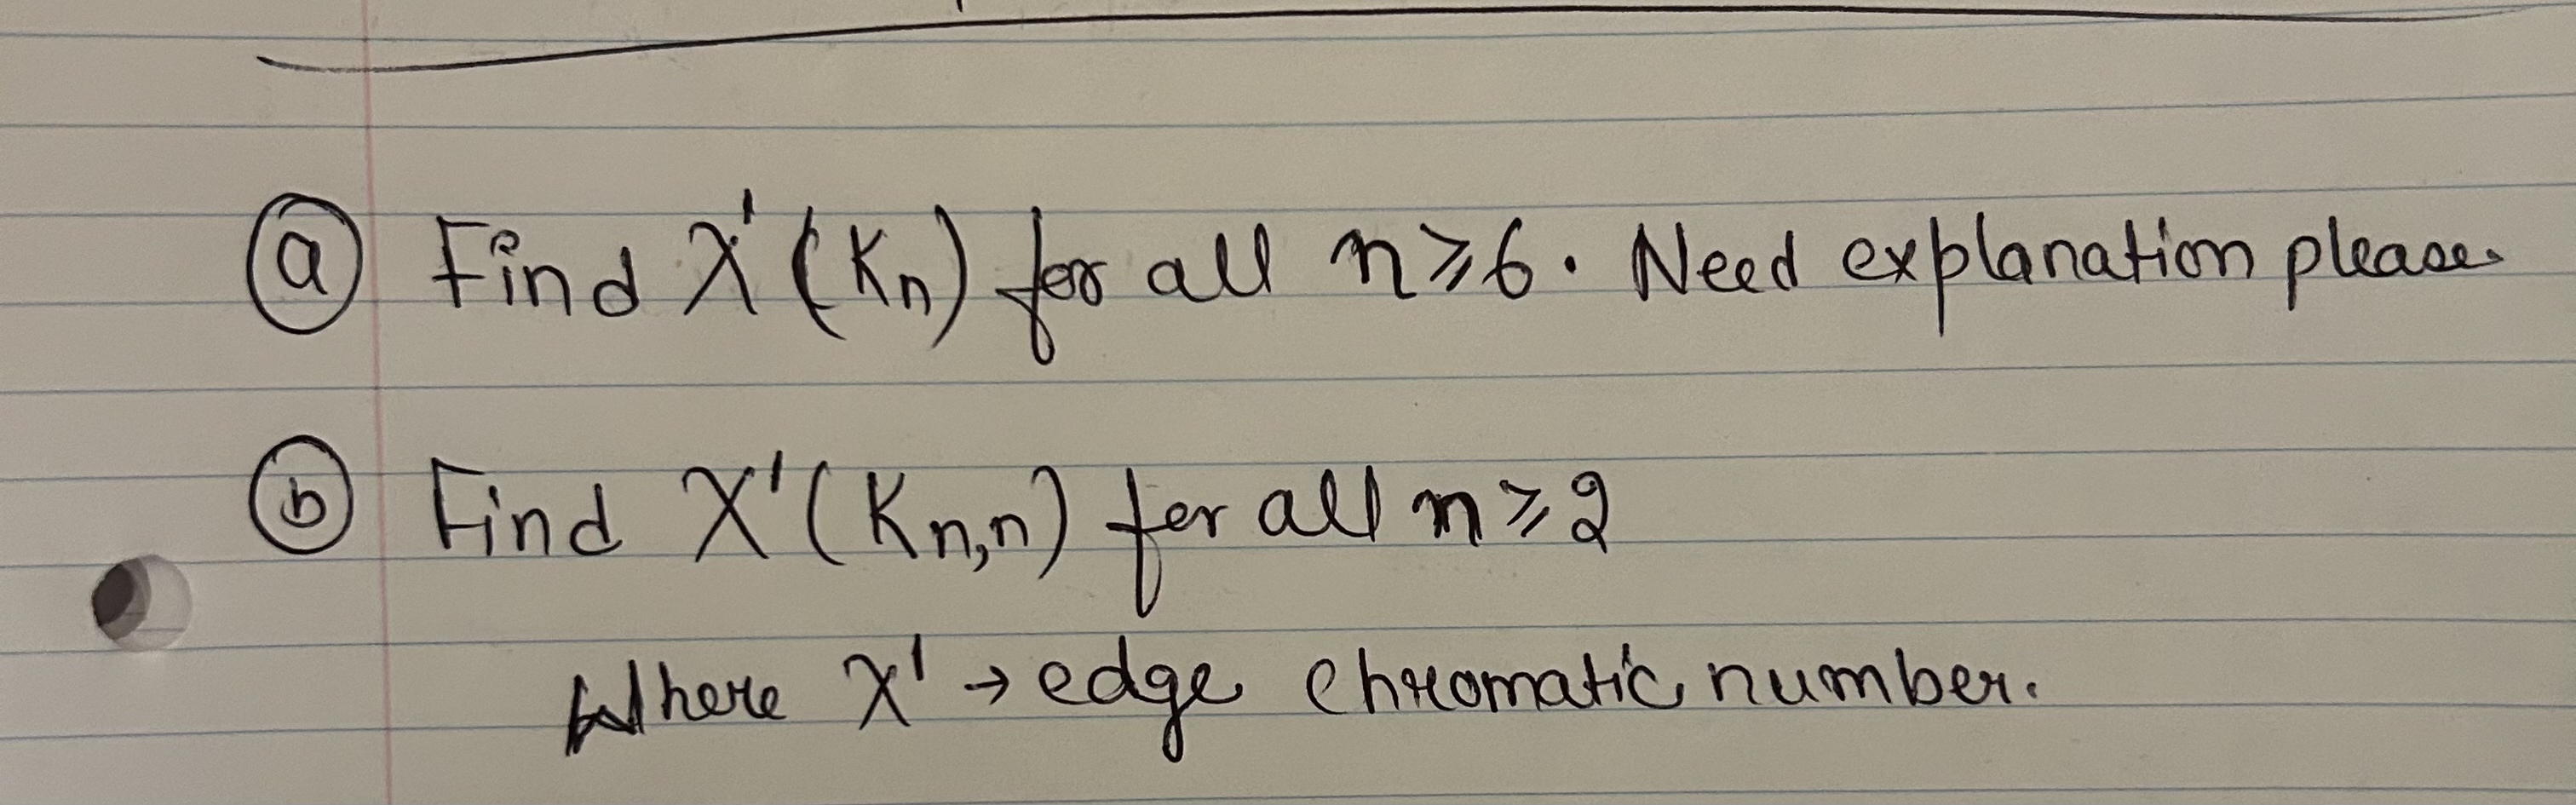 (a) Find χ'(Kn) for all n ≥ 6. Need explanation please.
(b) Find χ'(Kn,n) for all n ≥ 2
Where χ' → edge chromatic number.